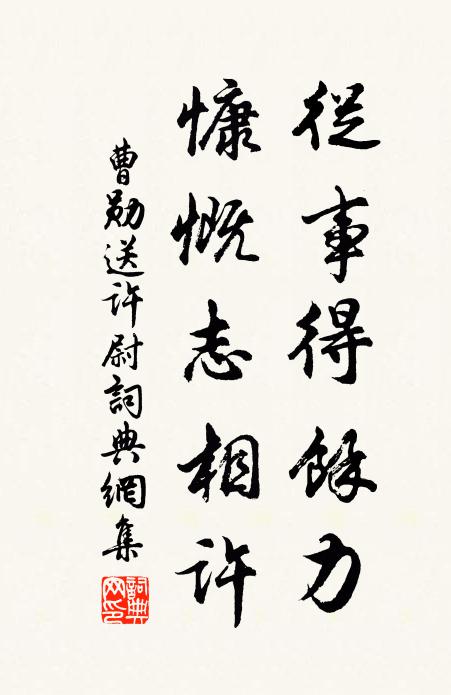 從事得餘力
慷慨志相許
曹勛送許尉詞典網集
詞典網印